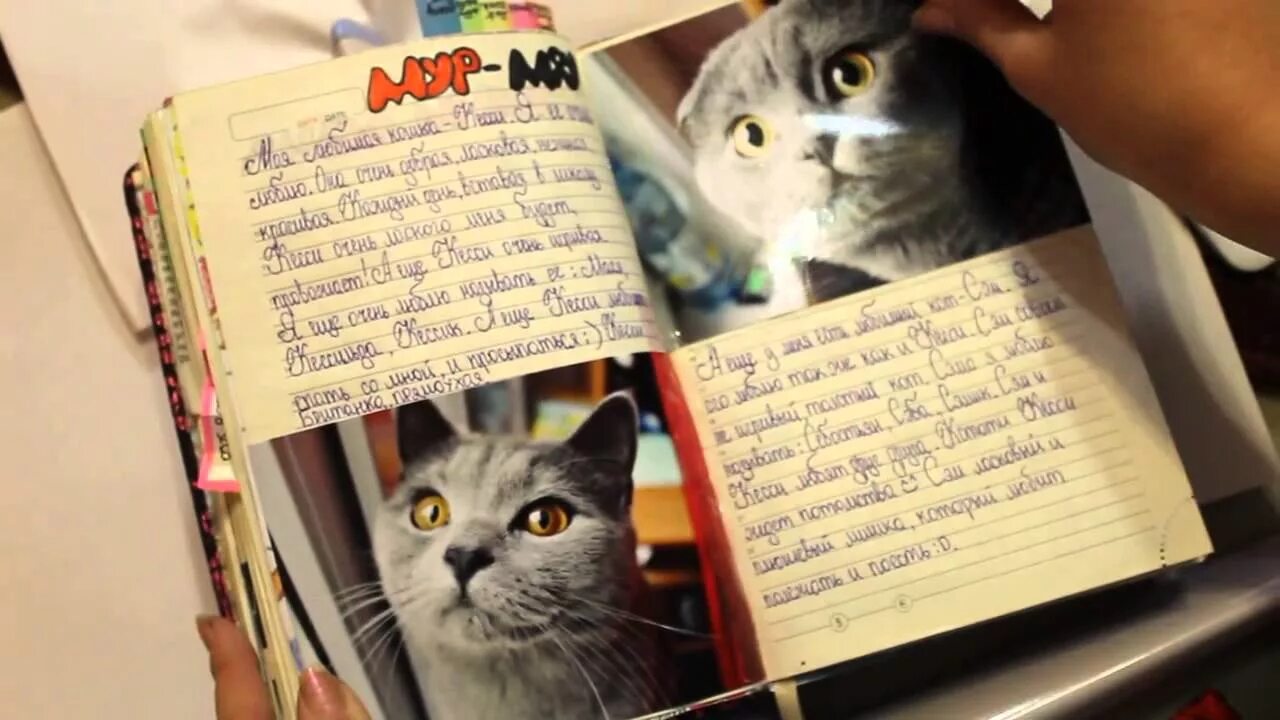 МУР-МЯУ
Моя любимая кошка-Кесси. Я её очень
люблю. Она очень добрая, ласковая, нежная
красивая. Каждый день, вставая в школу,
Кесси очень лаского меня будет,
провожает! А еще Кесси очень игривая
Я еще очень люблю называть её: Маля,
Кессильда, Кессик. А еще Кесси любит
спать со мной, и просыпаться :) Кесси
Британка, прямоухая
А еще у меня есть любимый кот-Сэм. Я
его люблю так же как и Кесси. Сэм
игривый, толстый кот. Сэма я люблю
называть: Себастьян, Сэба, Сэмик. Сэм и
Кесси любят друг друга. Котаты Кесси
ждет потомства Сэм ласковый и
плюшевый мишка, который любит
полежать и поесть :D.
5 6